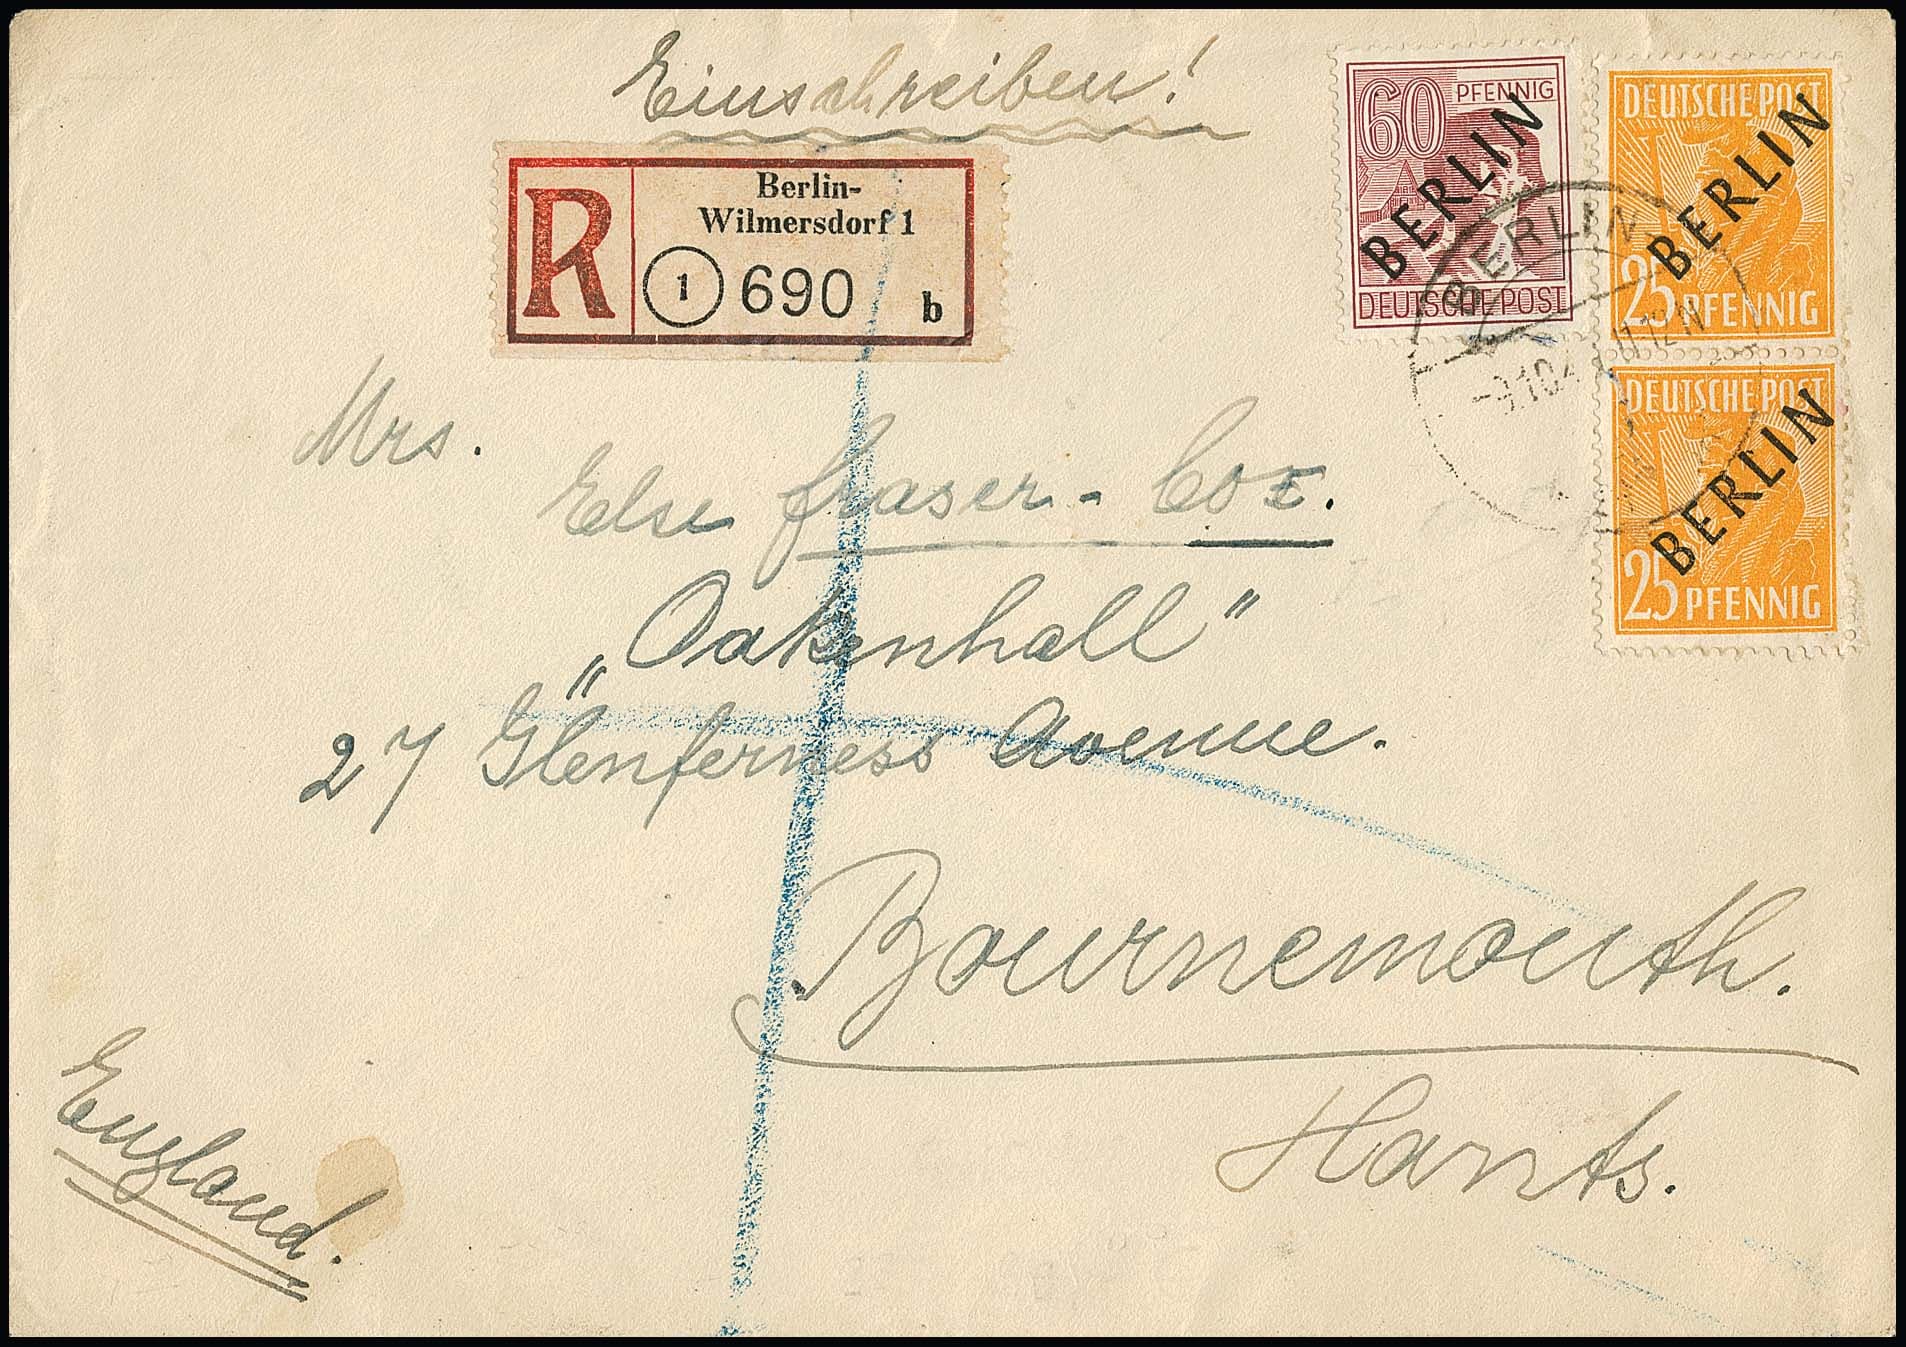 Einschreiben!
R
Berlin-
Wilmersdorf 1
1 690 b
60 PFENNIG
BERLIN
DEUTSCHE POST
DEUTSCHE POST
BERLIN
25 PFENNIG
DEUTSCHE POST
BERLIN
25 PFENNIG
BERLIN
Mrs.
Else Fraser-Cox.
„Oakenhall"
27 Glenferness Avenue.
Bournemouth.
Hants.
England.